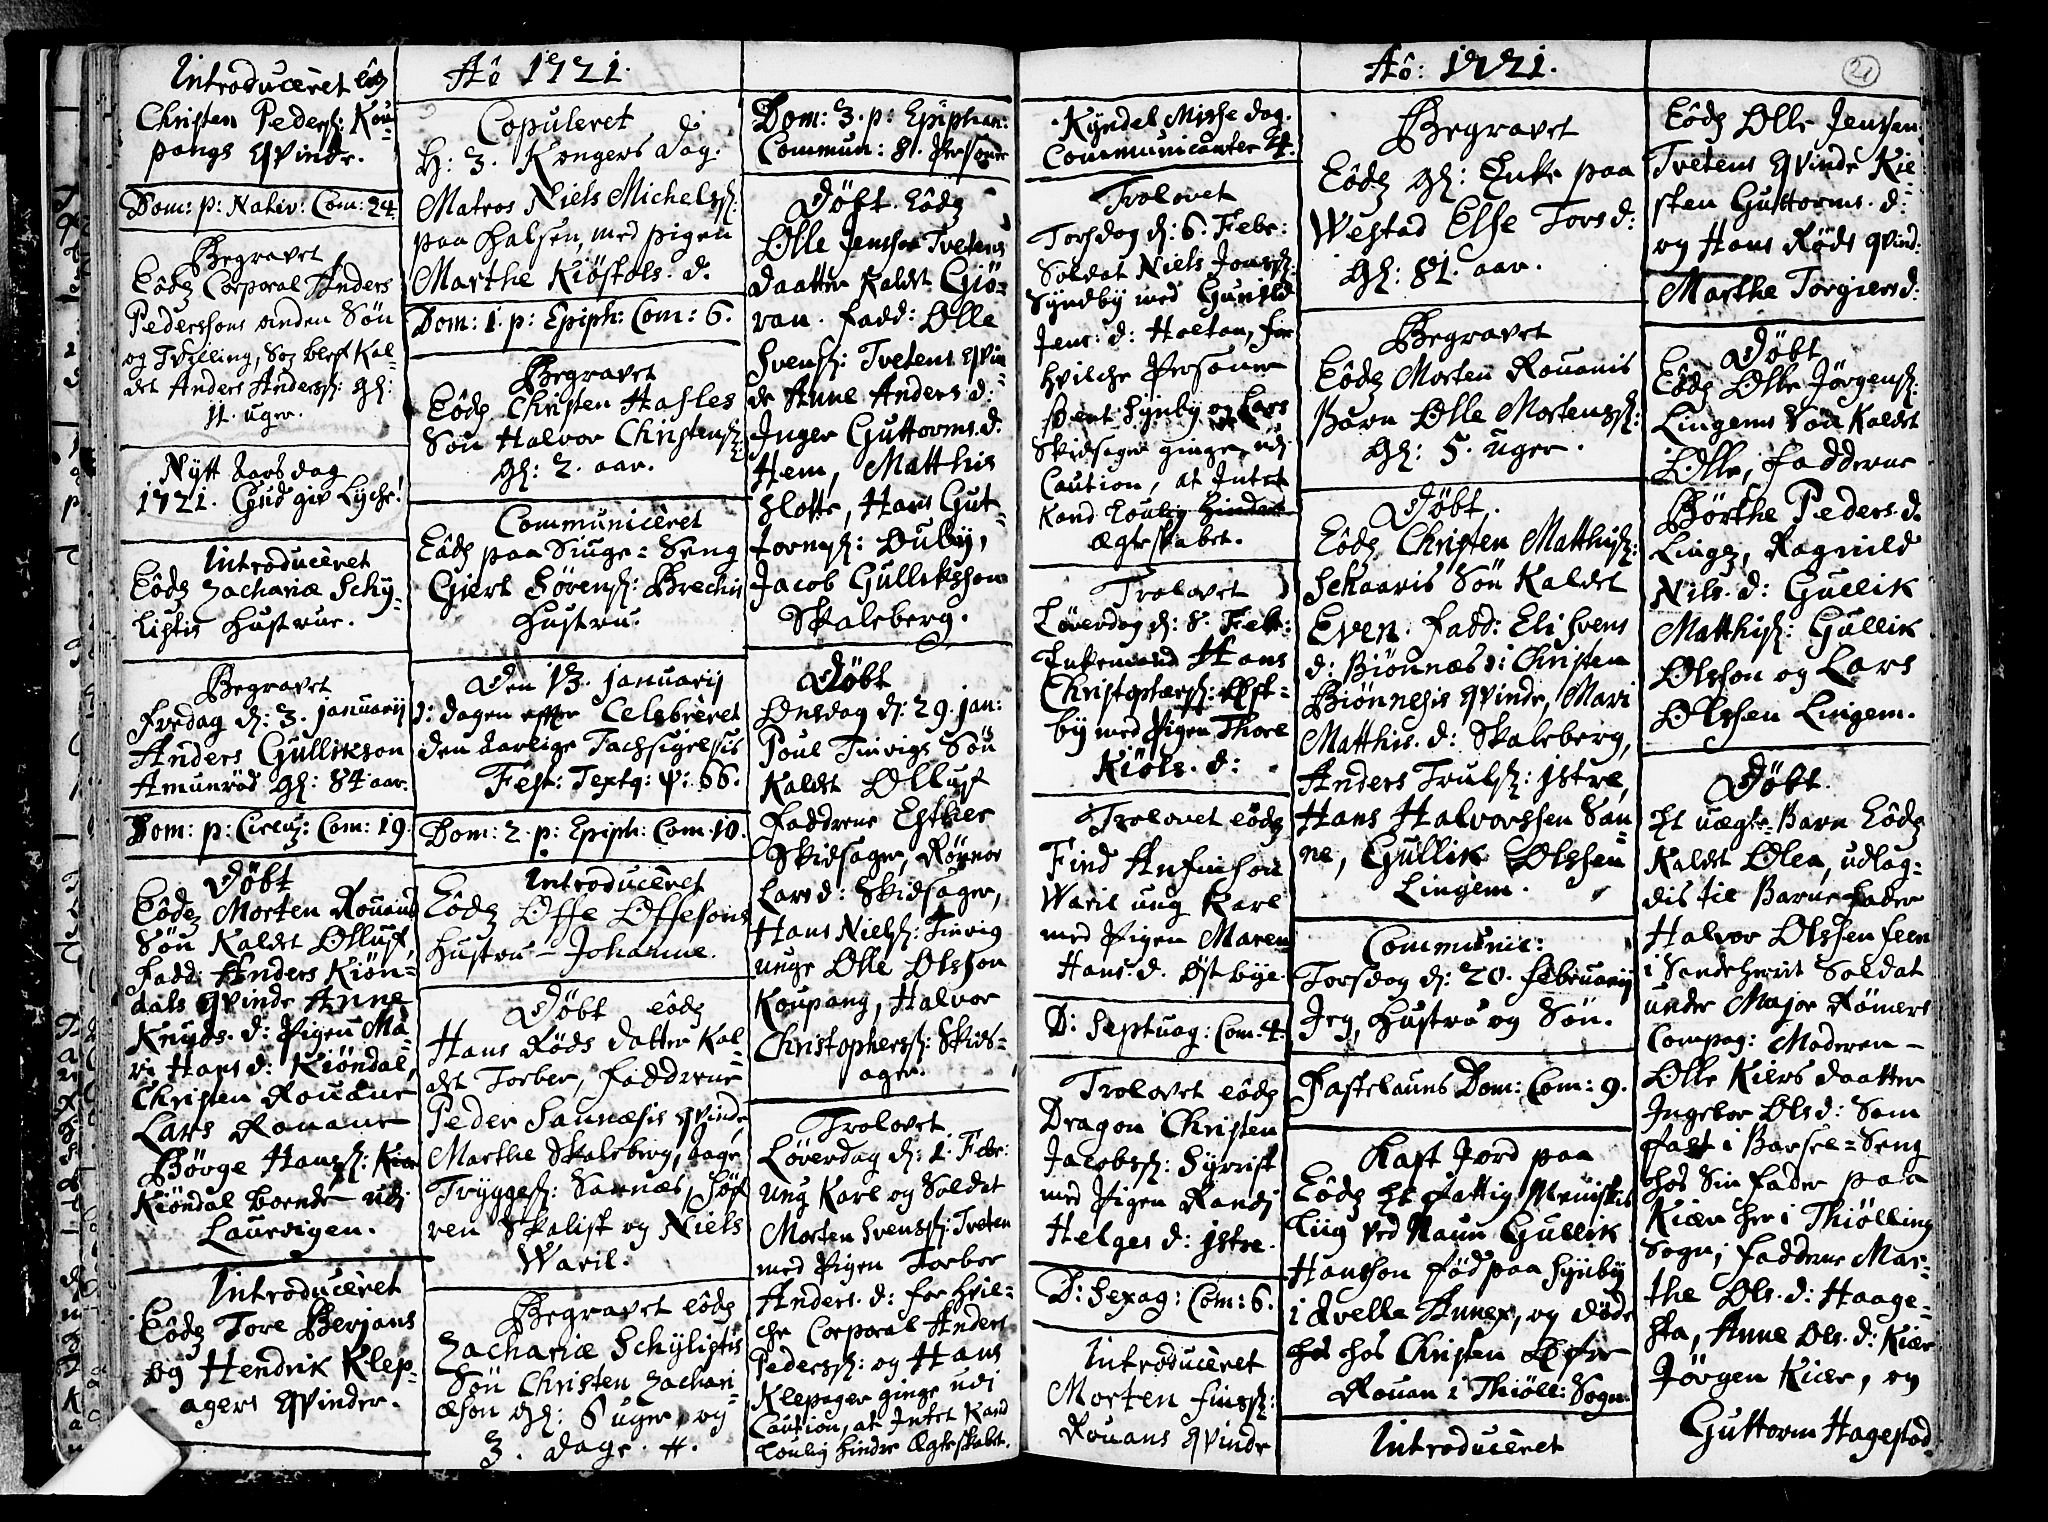 Introduceret Eôdz
Christen Peders: Kou=
pangs Qvinde.
Dom: p: Nativ: Com: 24.
Begravet
Eôdz Corporal Anders
Pederssons anden Søn
og Tvilling, som blef kal=
det Anders Anderss: gl:
11. uger.
Nytt Aars dag
1721. Gud giv Lyche!
Introducêret
Eôdz Zachariæ Schÿ=
liptis Hustrue.
Begravet
Fredag d: 3. Januarij
Anders Gullikson
Amunrød gl: 84 aar.
Dom: p: Circuz: Com: 19.
Døbt
Eôdz Morten Rouans
Søn kaldt Olluf
Fadd: Anders Kiøn=
dals Qvinde Anne
Knuds. d: Pigen Ma=
ri Hans d: Kiøndal,
Christen Rouane
Lars Rouane
Børge Hanss:
Kiøndal boende udi
Laurvigen.
Introducêret
Eôdz Tore Berjans
og Hendrik Klep=
agers Qvinder.
Aô 1721.
Copuleret
H: 3. Kongers Dag.
Matros Niels Michelss:
paa Halsen, med pigen
Marthe Kiøstols. d.
Dom: 1. p: Epiph: Com: 6.
Begravet
Eôdz Christen Hasles
Søn Halvor Christens:
gl: 2. aar.
Communicêret
Eôdz paa Siuge=Seng
Giert Sørens: Brechis
Hustru.
Den 13. Januarij
d: dagen effter Celebrêret
den aarlige Tachsigelsis
Fest: Textq: ψ: 66.
Dom: 2. p: Epiph: Com. 10.
Introducêret
Eôdz Offe Offesons
Hustru - Johanne.
Døbt eôdz
Hans Røds datter kal=
det Torber, Faddrene
Peder Saunæsis Qvinde,
Marthe Skaleberg, Aage
Trÿggess: Sarnæs, Søf
ren Skalist og Niels
Waril.
Begravet eôdz
Zachariæ Schÿliptis
Søn Christen Zachari=
æson gl: 6 uger og
3. dage.
Dom: 3. p: Epiphan:
Commun: 8. Persone
Døbt. Eôdz
Olle Jenssøn Tvetens
Daatter kaldt Giø=
ran. Fadd: Olle
Svens: Tvetens Qvin=
de Anne Anders. d:
Inger Guttorms. d.
Hem, Matthis
Slotte, Hans Gut=
torms: Oubÿ,
Jacob Gulliksson
Skaleberg.
Døbt
Onsdag d: 29. Jan:
Poul Tinvigs Søn
kaldt Olluf
Faddrene Esther
Skidsager, Rønnov
Lars d: Skidsager,
Hans Niels: Tinvig
unge Olle Olsson
Koupang, Halvor
Christopherss: Skids=
ager.
Trolovet
Løverdag d: 1. Febr:
ung Karl og Soldat
Morten Svenss: Tveten
med Pigen Torbor
Anders. d: for hvil=
che Corporal Anders
Pederss: og Hans
Klepager ginge udi
Caution, at Intet kand
Loulig hindre Ægteskabet.
Kyndel Misse dag.
Communicanter 4.
Trolovet
Torsdag d: 6. Febr:
Soldat Niels Jonss:
Sÿndbÿ med Gunild
Jens: d: Holtan, for
hvilche Personer
Svent Synbÿ og Lars
Skidsager ginge udi
Caution, at Intet
kand Loulig hindre
Ægteskabet.
Trolovet
Løverdag d: 8. Febr:
Enkemand Hans
Christophers:
bÿ med Pigen Thore
Kiøls. d:
Trolovet eôdz
Find Anfinson
Waril ung Karl
med Pigen Maren
Hans. d. Østbÿe.
D: Septuag: Com: 4.
Trolovet eôdz
Dragon Christen
Jacobss: Syrrist
med Pigen Randi
Helges d: Istre.
D: Sexag: Com: 6.
Introducêret
Morten Finss:
Rouans Qvinde
Aô: 1721.
Begravet
Eôdz gl: Enke paa
Westad Else Tors d:
gl: 81. aar.
Begravet
Eôdz Morten Rouanis
Barn Olle Mortenss:
gl: 5. uger.
Døbt.
Eôdz Christen Matthiss:
Schaaris Søn kaldt
Even. Fadd: Eli Svens
d: Biønnæs, Christen
Biønnesis Qvinde, Mari
Matthis. d: Skaleberg,
Anders Truls: Istre,
Hans Halvorssen San=
ne, Gullik Olssen
Lingem.
Communic:
Torsdag d: 20. Februarij
Jeg, Hustru og Søn.
Fastelauns Dom: Com: 9.
Kast Jord paa
Eôdz Et fattig Menniske
Liig ved Naun Gullik
Hansson fød paa Sÿnbÿ
i Qvelle Annex, og døde
hos Christen
Rouan i Thiøll: Sogn.
Introducêret
21
Eôdz Olle Jenssen
Tvetens Qvinde Kie=
sten Guttorms. d:
og Hans Røds Qvind:
Marthe Torgiers d:
Døbt
Eôdz Olle Jørgens:
Lingems Søn kaldt
Olle, Fadderne
Børthe Peders. d.
Lingem, Ragnild
Nils. d: Gullik
Matthis: Gullik
Olsson og Lars
Olssen Lingem.
Døbt.
Et uægte Barn Eôdz
kaldt Olea, udlag=
dis til Barnefader
Halvor Olssen Feen
i Sandeherrit Soldat
under Major Rømers
Compag: Moderen -
Olle Kiers Daatter
Ingebor Ols d: Som
falt i Barsel=Seng
hos Sin Fader paa
Kiær her i Thiølling
Sogn, Faddrene Mar=
the Ols. d: Haage=
sta, Anne Ols. d: Kiær
Jørgen Kiær, og
Guttorm Hagestad.